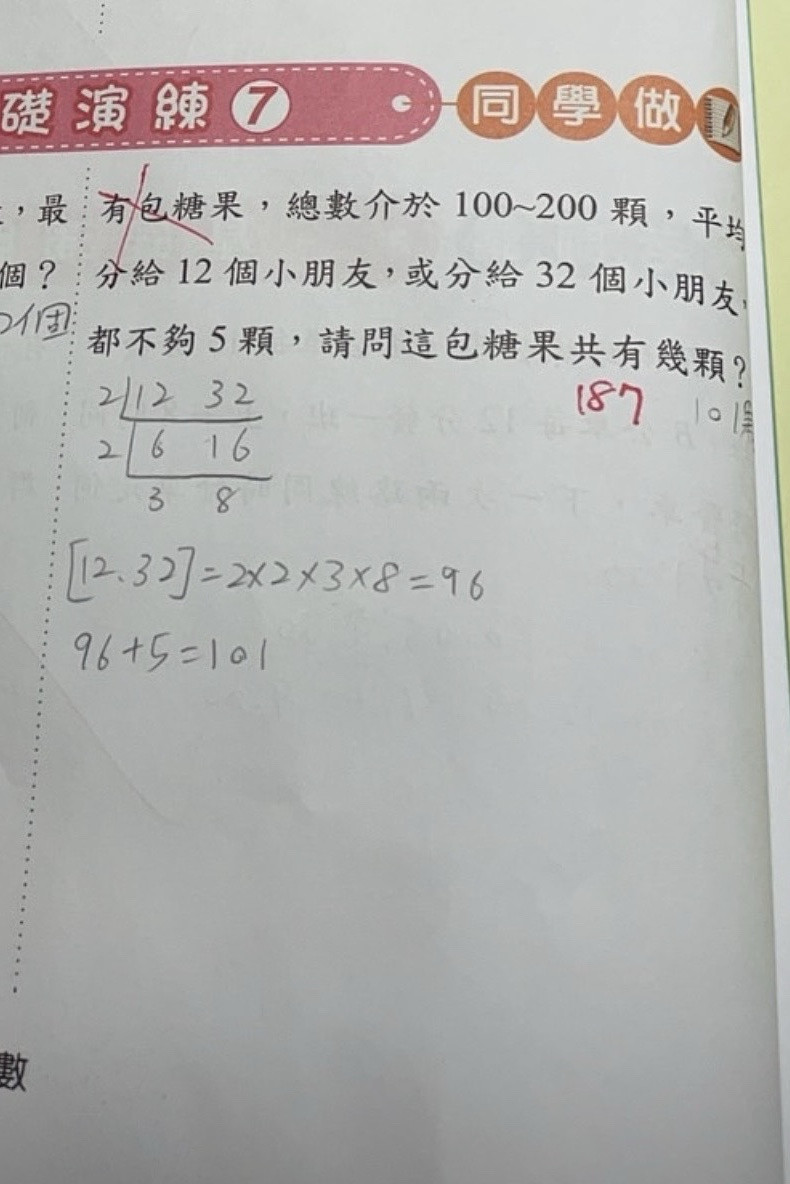 礎演練7 同學做
，最
有包糖果，總數介於 100~200 顆，平均
個？
分給 12 個小朋友，或分給 32 個小朋友，
個
都不夠 5 顆，請問這包糖果共有幾顆？
187 101
2 12 32
2 6 16
3 8
[12、32]=2×2×3×8=96
96+5=101
數